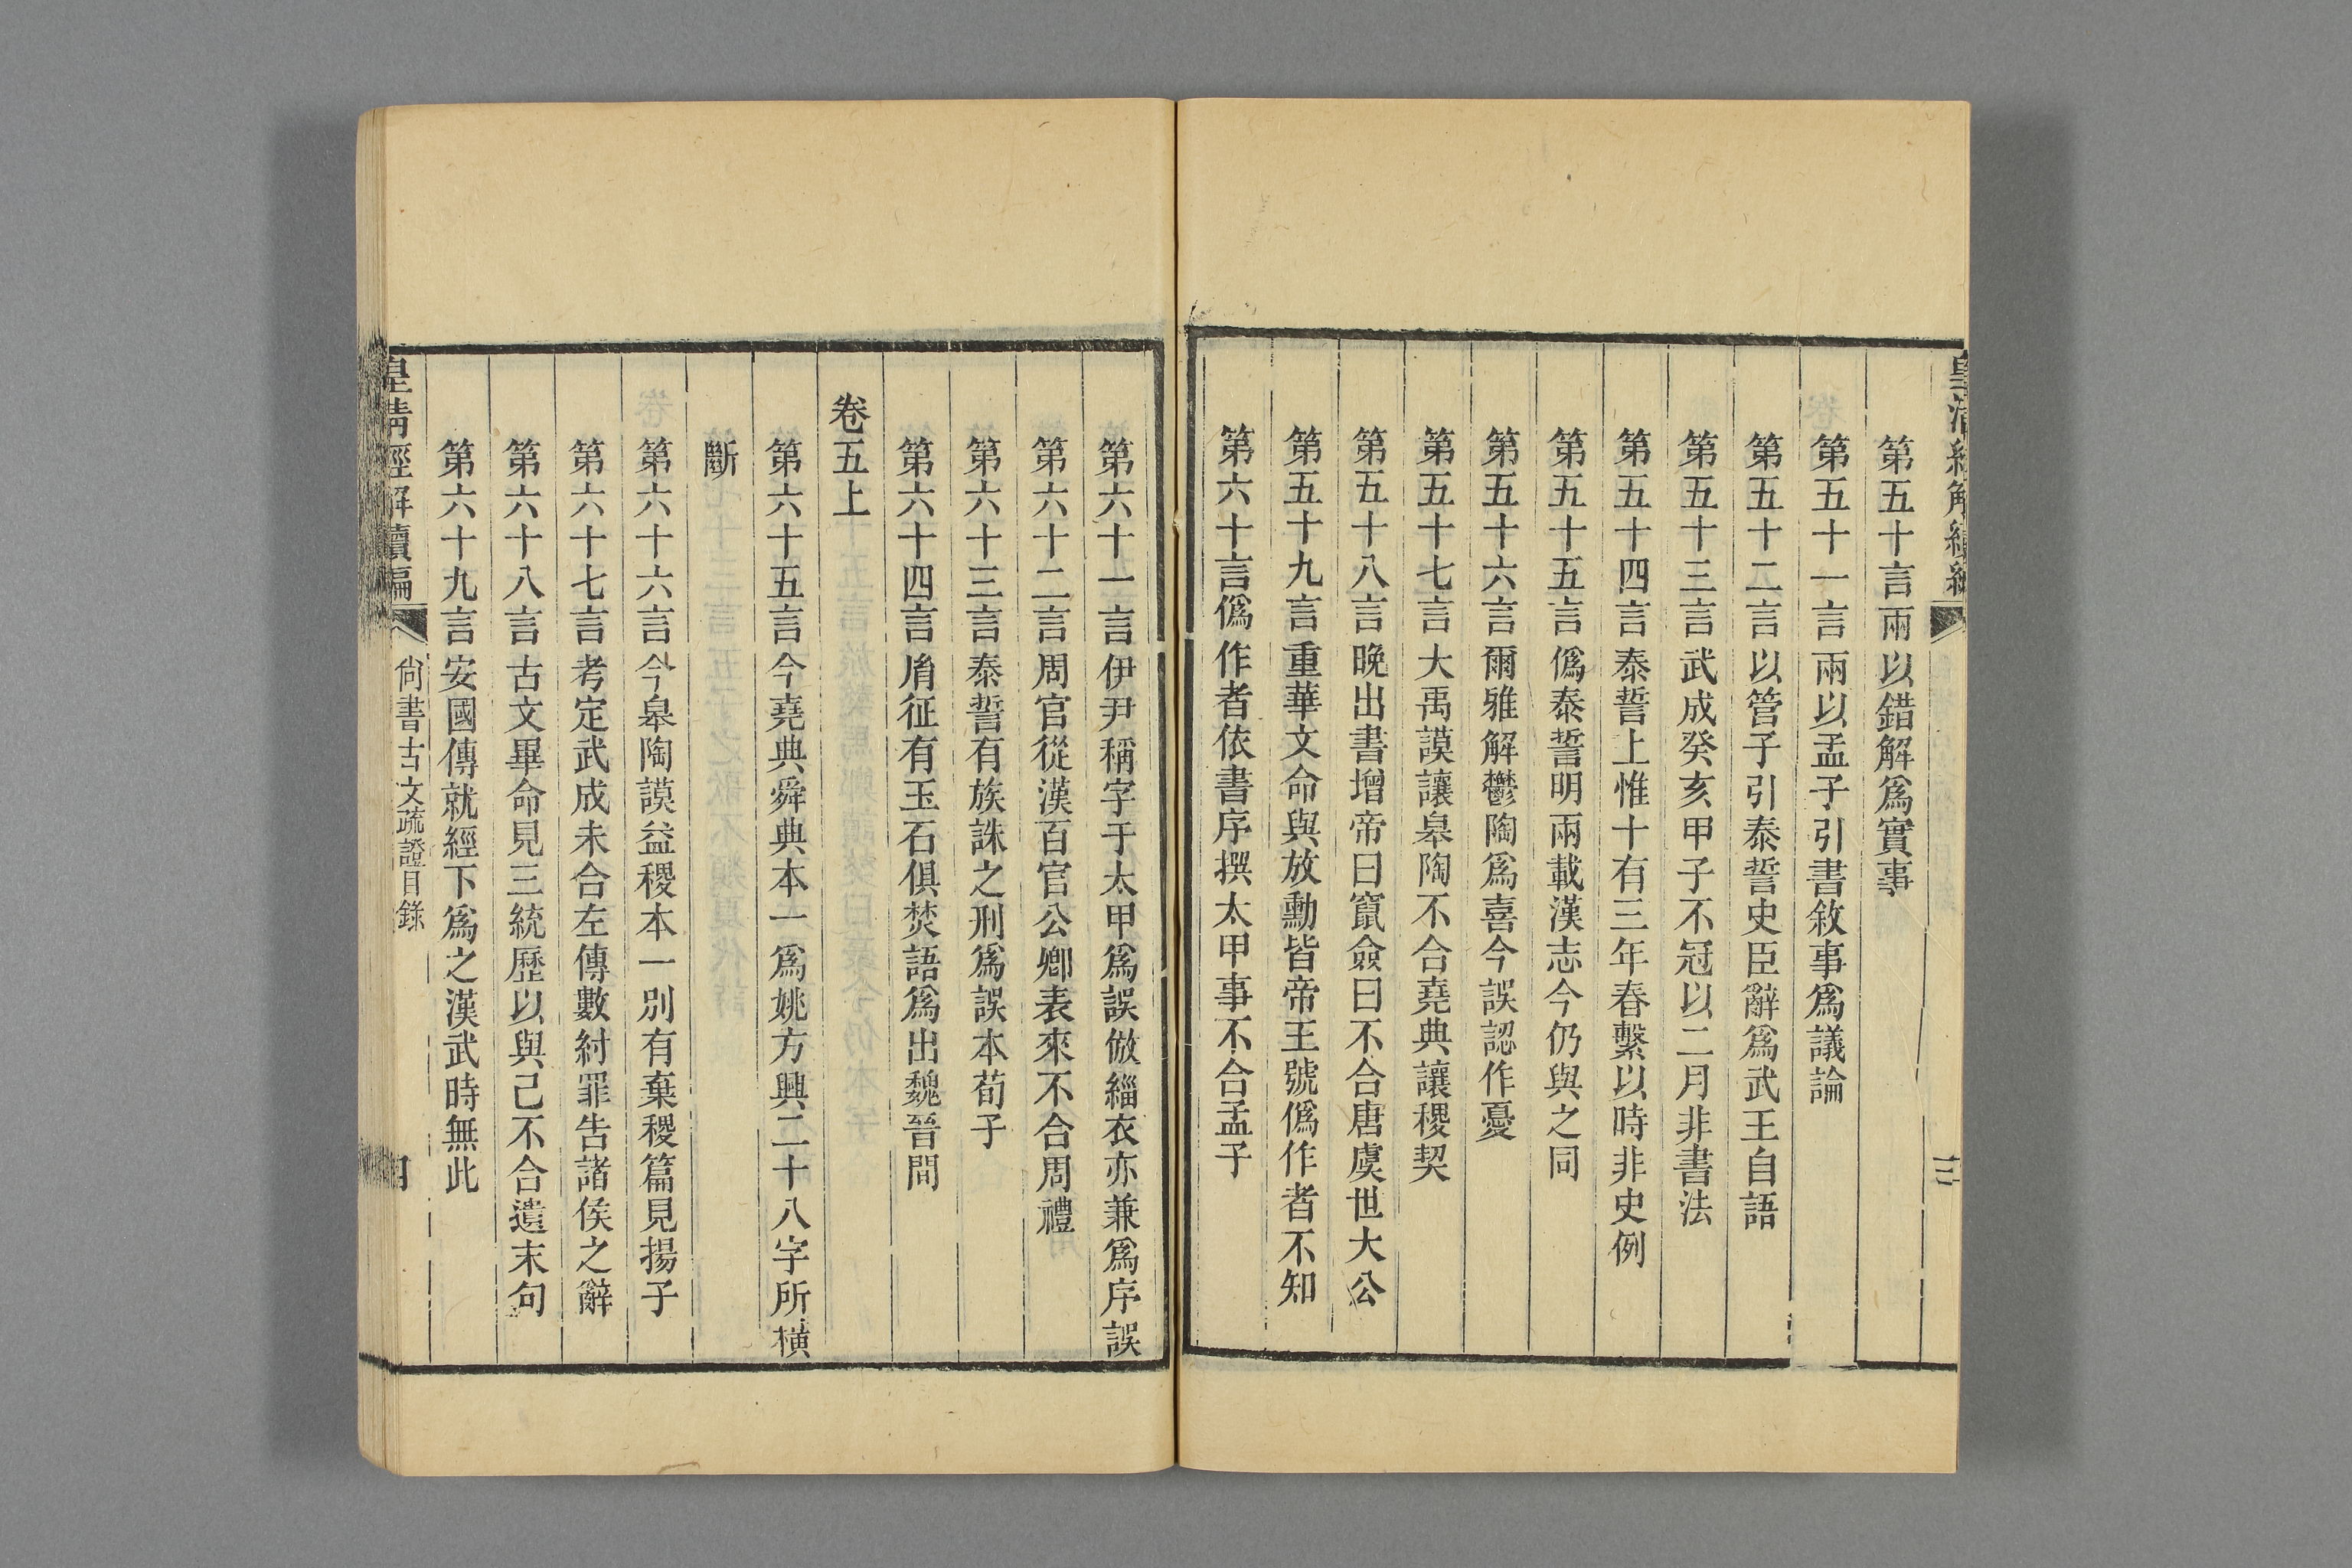 皇清經解續編
三
第五十言兩以錯解爲實事
第五十一言兩以孟子引書敘事爲議論
第五十二言以管子引泰誓史臣辭爲武王自語
第五十三言武成癸亥甲子不冠以二月非書法
第五十四言泰誓上惟十有三年春繫以時非史例
第五十五言僞泰誓明兩載漢志今仍與之同
第五十六言爾雅解鬱陶爲喜今誤認作憂
第五十七言大禹謨讓皋陶不合堯典讓稷契
第五十八言晚出書增帝曰竄僉曰不合唐虞世大公
第五十九言重華文命與放勳皆帝王號僞作者不知
第六十言僞作者依書序撰太甲事不合孟子
第六十一言伊尹稱字于太甲爲誤倣緇衣亦兼爲序誤
第六十二言周官從漢百官公卿表來不合周禮
第六十三言泰誓有族誅之刑爲誤本荀子
第六十四言胤征有玉石俱焚語爲出魏晉間
卷五上
第六十五言今堯典舜典本一爲姚方興二十八字所橫
斷
第六十六言今皋陶謨益稷本一別有棄稷篇見揚子
第六十七言考定武成未合左傳數紂罪告諸侯之辭
第六十八言古文畢命見三統歷以與己不合遺末句
第六十九言安國傳就經下爲之漢武時無此
皇清經解續編
尙書古文疏證目錄
四